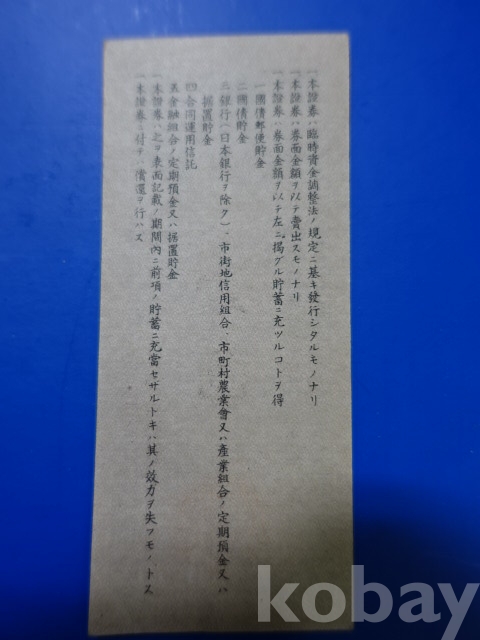 一本證券ハ臨時資金調整法ノ規定ニ基キ發行シタルモノナリ
一本證券ハ券面金額ヲ以テ賣出スモノナリ
一本證券ハ券面金額ヲ以テ左ニ掲グル貯蓄ニ充ツルコトヲ得
一國債郵便貯金
二國債貯金
三銀行(日本銀行ヲ除ク)、市街地信用組合、市町村農業會又ハ產業組合ノ定期預金又ハ
据置貯金
四合同運用信託
五金融組合ノ定期預金又ハ据置貯金
一本證券ハ之ヲ表面記載ノ期間內ニ前項ノ貯蓄ニ充當セザルトキハ其ノ效力ヲ失フモノトス
一本證券ニ付テハ償還ヲ行ハズ
kobay